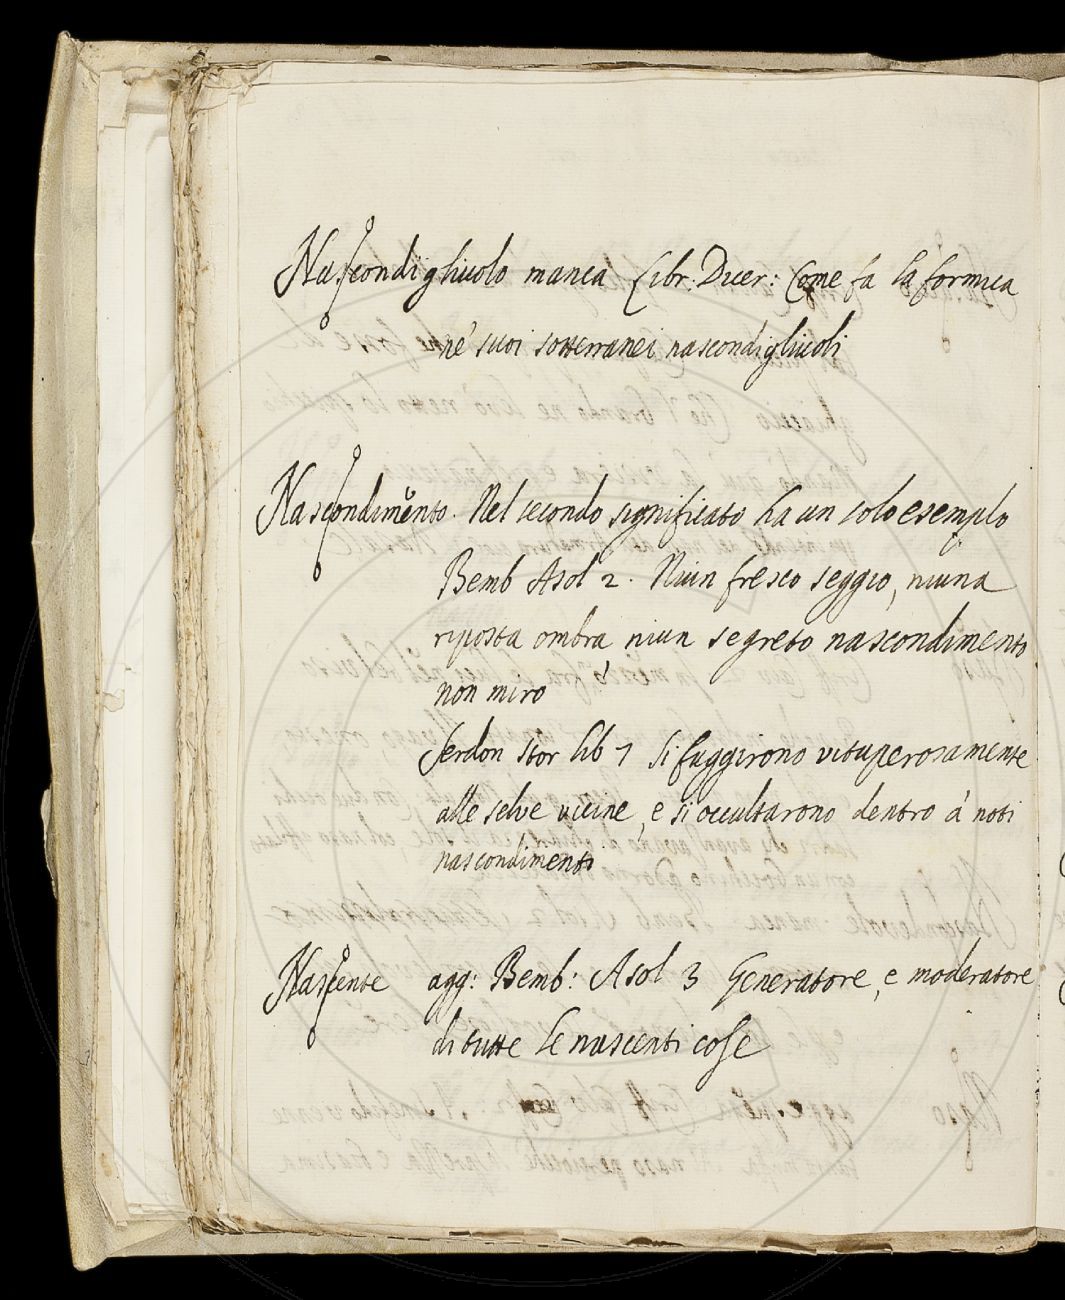 Nascondigliuolo manca Libr: Dicer: Come fa la formica
ne' suoi sotterranei nascondigliuoli
Nascondimento. Nel secondo significato ha un solo esemplo
Bemb Asol 2. Niun fresco seggio, niuna
riposta ombra niun segreto nascondimento
non miro
Serdon stor lib 1 si fuggirono vituperosamente
alle selve vicine, e si occultarono dentro à noti
nascondimenti
Nascente agg: Bemb: Asol 3 Generatore, e moderatore
di tutte le nascenti cose